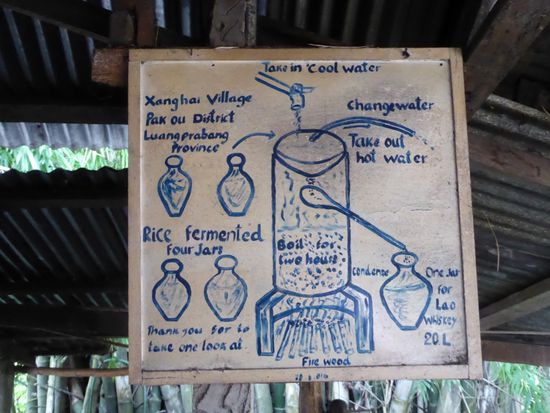 Take in 'Cool water
Xanghai Village
Pak ou District
Luangprabang
Province
Changewater
Take out
hot water
Rice fermented
Four Jars
Boil for
two hours
Condense
One Jar
for
Lao
Whiskey
20 L
Thank you for to
take one look at
Fire wood